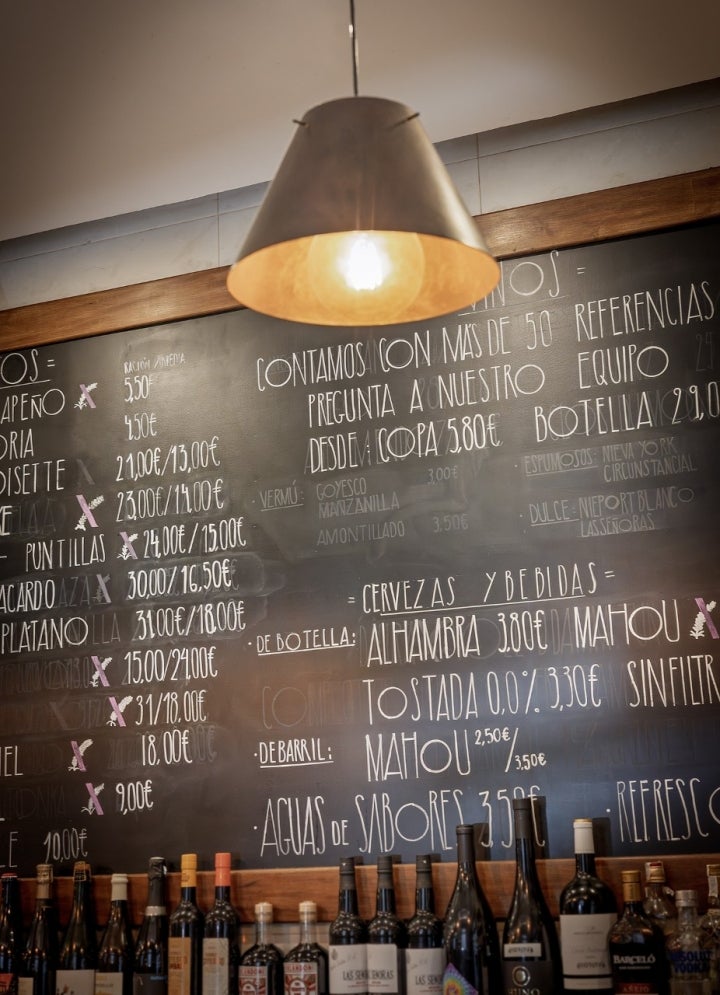 OS =
RACIÓN / MEDIA
APEÑO 5,50€
ORIA 4,50€
OISETTE 21,00€/13,00€
23,00€/14,00€
PUNTILLAS 24,00€/15,00€
ACARDO 30,00/16,50€
PLATANO 31,00€/18,00€
15,00/24,00€
31/18,00€
IEL 18,00€
9,00€
LE 10,00€
VINOS =
CONTAMOS CON MAS DE 50 REFERENCIAS
PREGUNTA A NUESTRO EQUIPO
DESDE: COPA 5,80€ BOTELLA 29,0
· VERMÚ: GOYESCO 3,00€
MANZANILLA
AMONTILLADO 3,50€
· ESPUMOSOS: NUEVA YORK
CIRCUNSTANCIAL
· DULCE: NIEPORT BLANCO
LAS SEÑORAS
= CERVEZAS Y BEBIDAS =
· DE BOTELLA: ALHAMBRA 3,80€ MAHOU
TOSTADA 0,0% 3,30€ SINFILTR
· DE BARRIL: MAHOU 2,50€/3,50€
· AGUAS DE SABORES 3,50€ · REFRESCO
LAS SEÑORAS
LAS SEÑORAS
BARCELÓ
AÑEJO
ABSOLUT
VODKA